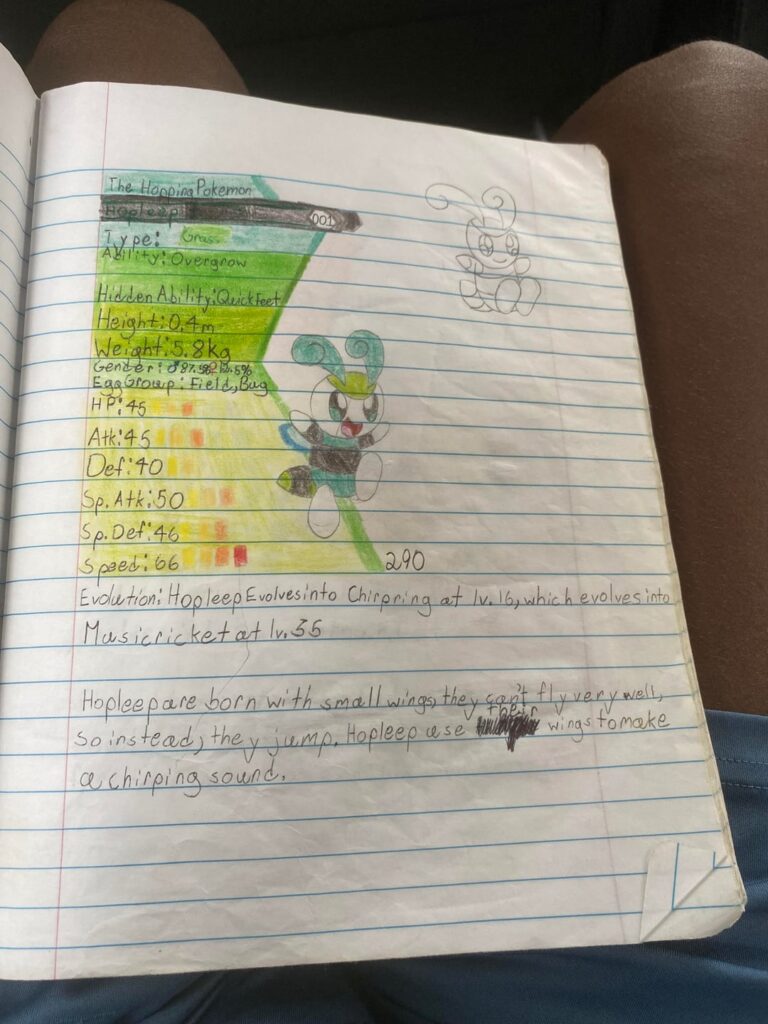 The Hopping Pokemon
Hopleep 001
Type: Grass
Ability: Overgrow
Hidden Ability: Quick Feet
Height: 0.4m
Weight: 5.8kg
Gender: ♂87.5% ♀12.5%
Egg Group: Field, Bug
HP: 45
Atk: 45
Def: 40
Sp. Atk: 50
Sp. Def: 46
Speed: 66
290
Evolution: Hopleep Evolves into Chirpring at lv. 16, which evolves into
Musicricket at lv. 35
Hopleep are born with small wings, they can't fly very well,
so instead, they jump. Hopleep use their wings to make
a chirping sound.